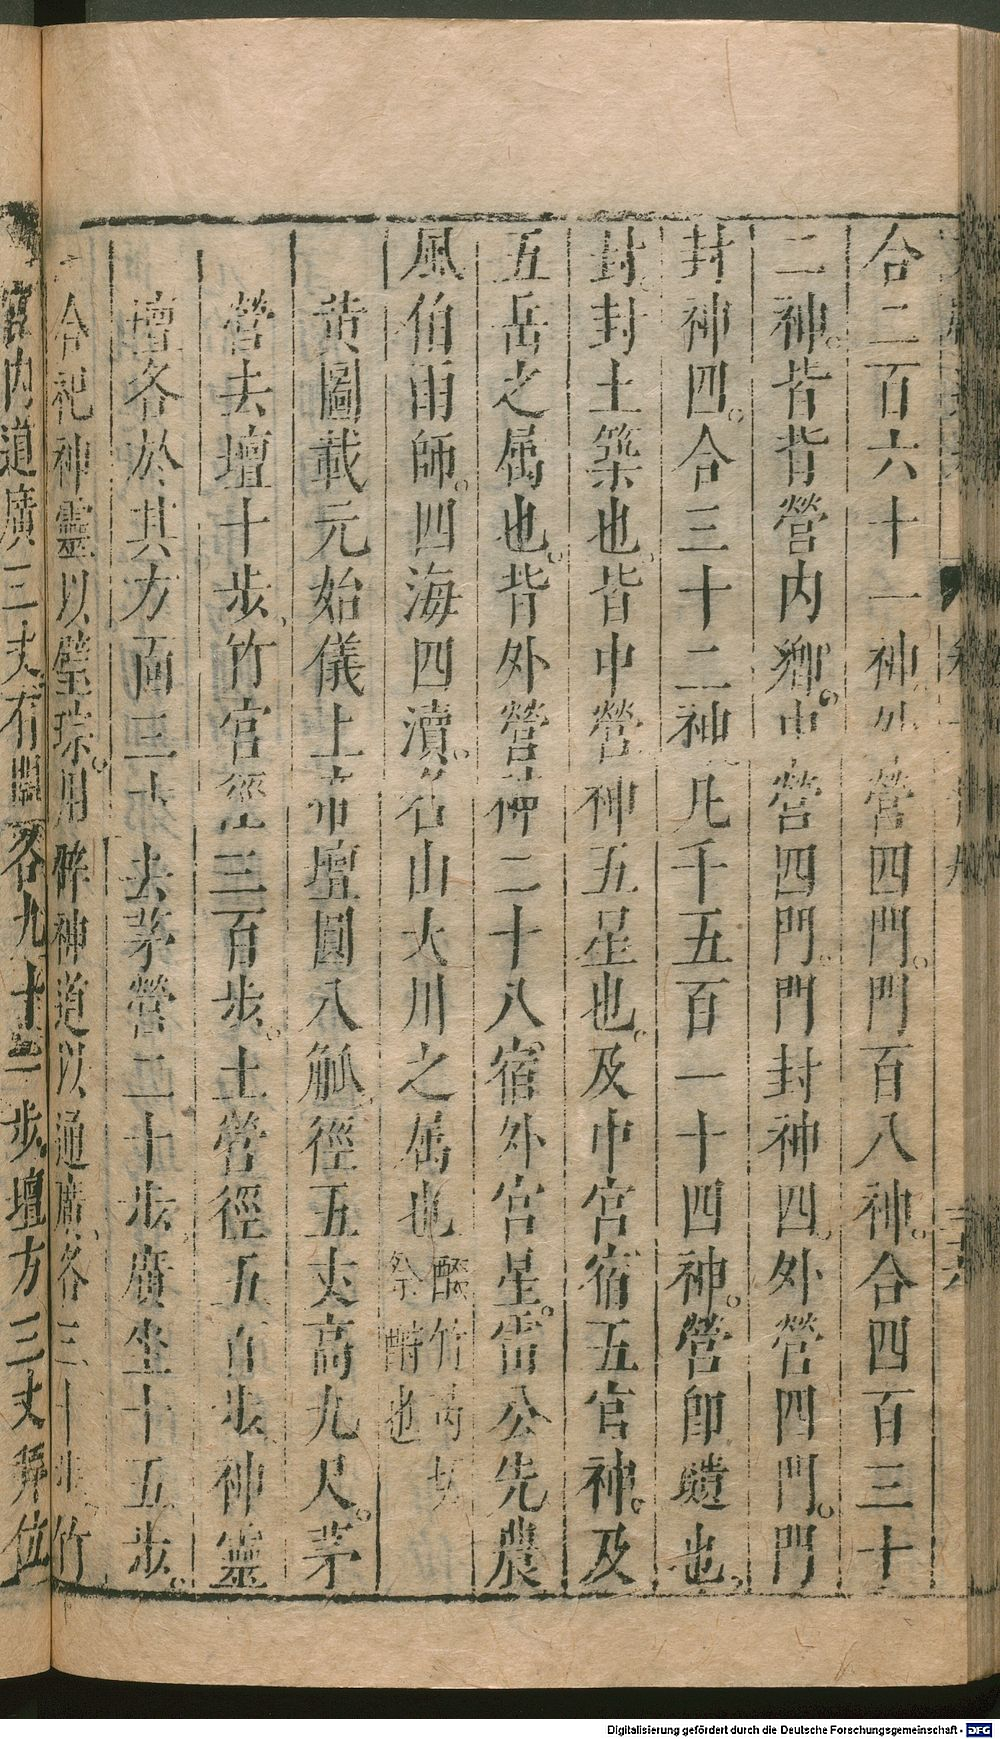 合二百六十一神外營四門。門百八神。合四百三十
二神。皆背營内鄉。中營四門。門封神四。外營四門。門
封神四。合三十二神凡千五百一十四神。營即壝也。
封封土築也。皆中營神五星也。及中宮宿五官神。及
五岳之屬也。背外營神二十八宿外宮星。雷公先農
風伯雨師。四海四瀆。名山大川之屬也醊竹芮切
祭酹也
黄圖載元始儀上帝壇圓八觚。徑五丈高九尺。茅
營去壇十步。竹宮徑三百步。土營徑五百步。神靈
壇各於其方面三丈去茅營二十步。廣坐十五步。
合祀神靈以璧琮。用辟神道以通廣。各三十步。竹
宮内道廣三丈有闕各九十一步。壇方三丈拜位
Digitalisierung gefördert durch die Deutsche Forschungsgemeinschaft - DFG